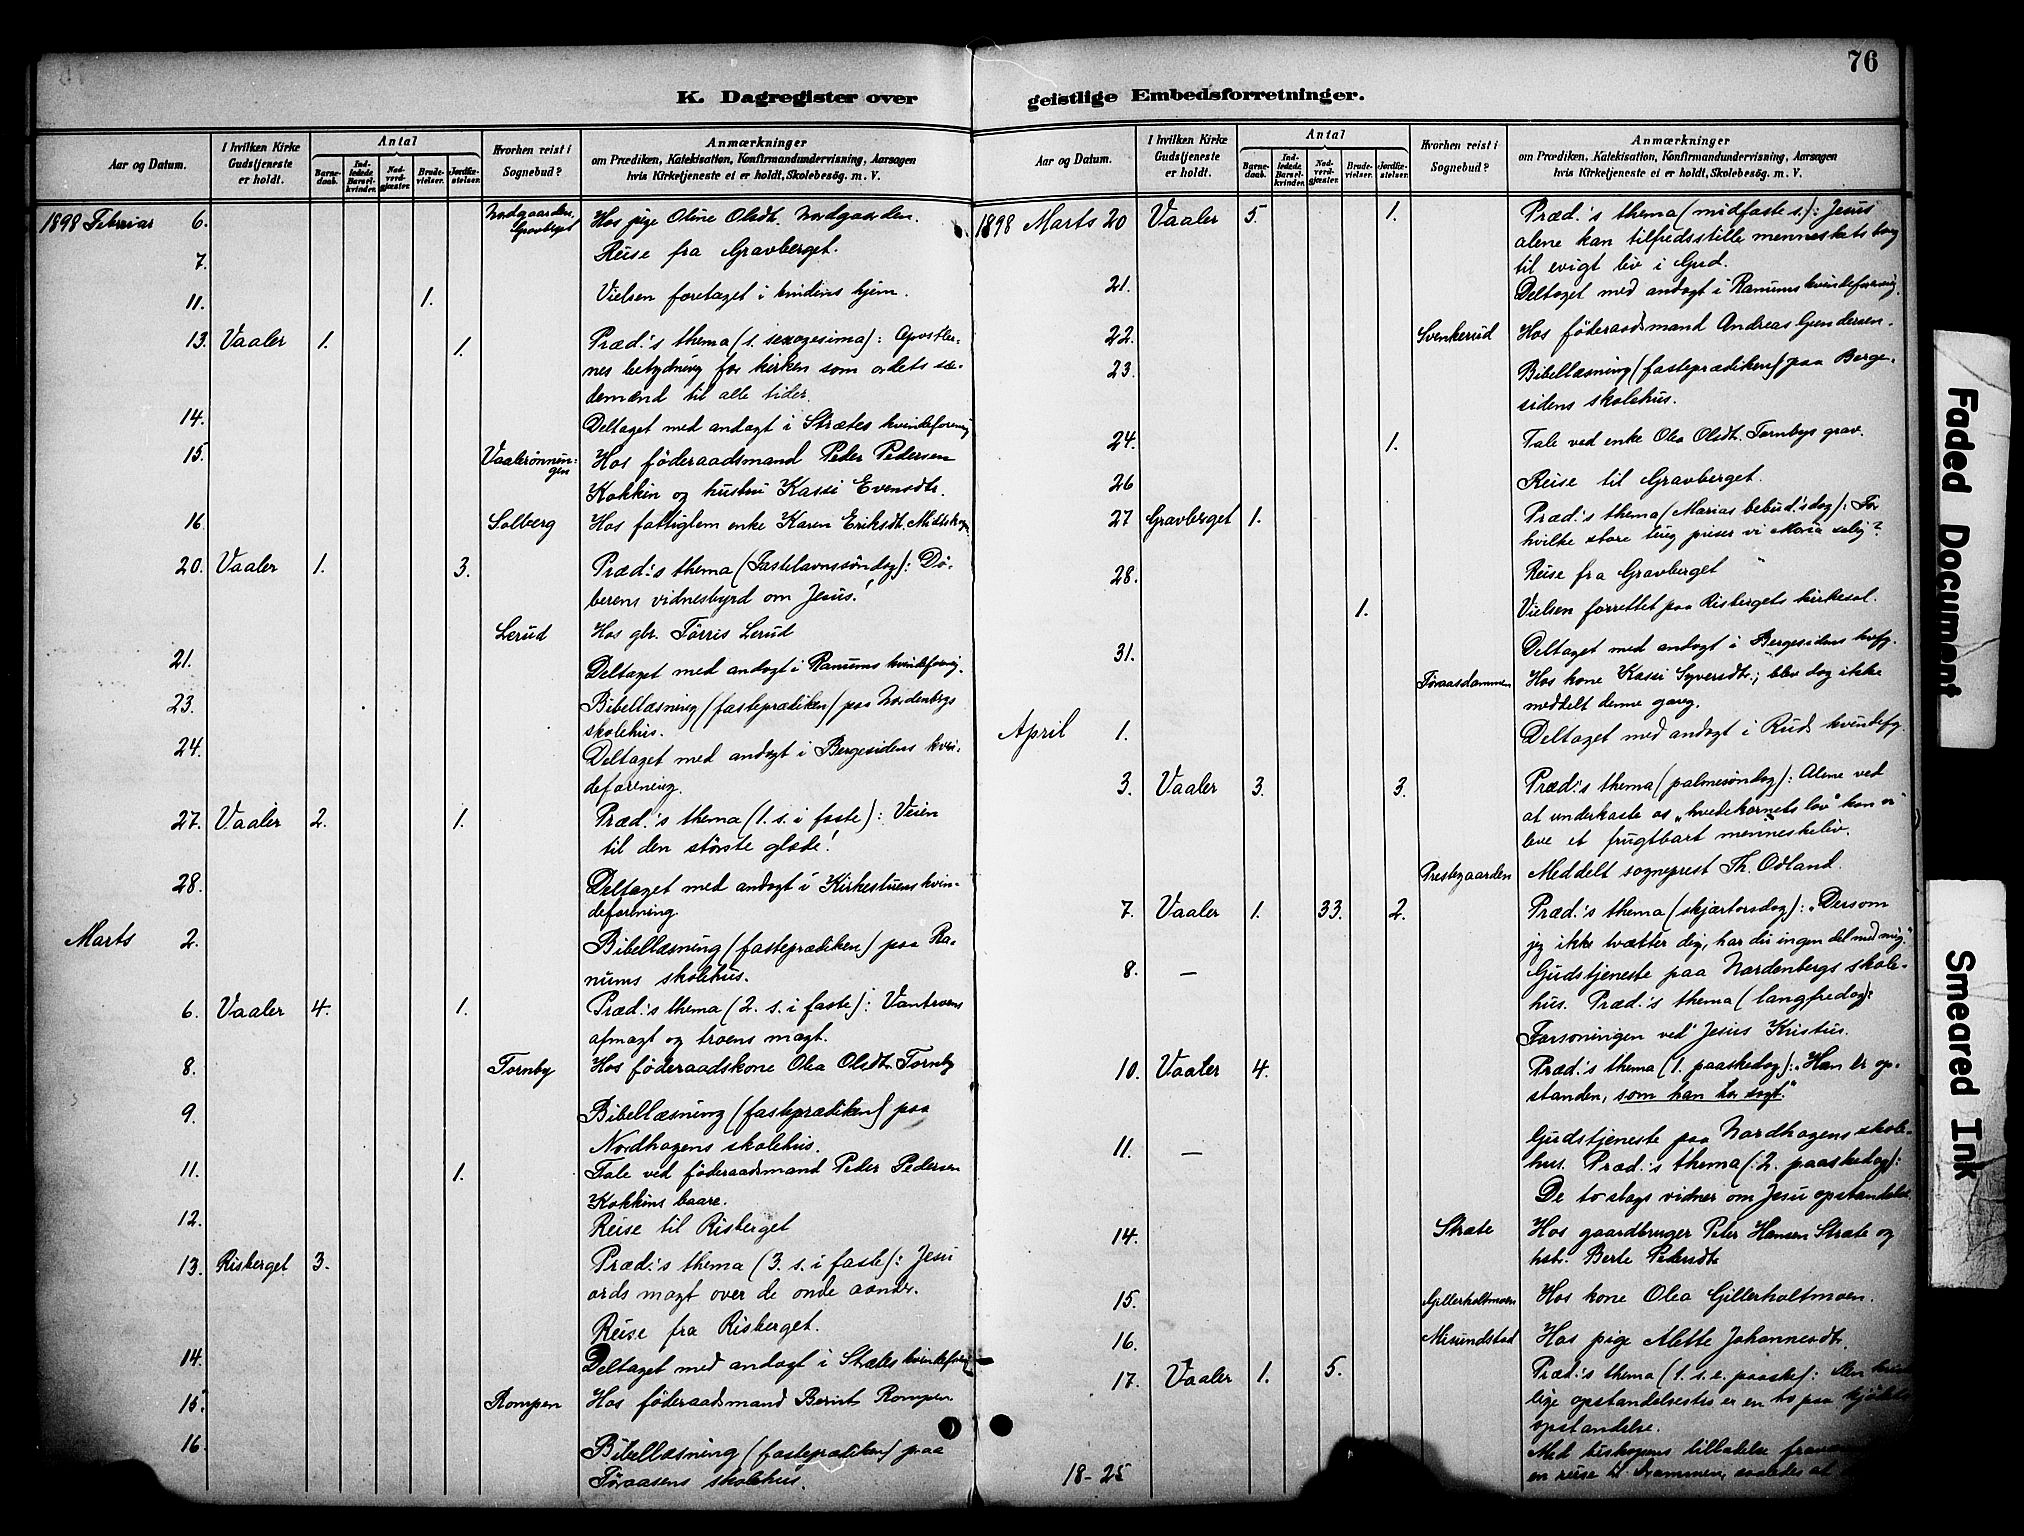 76
K. Dagregister over geistlige Embedsforretninger.
Aar og Datum. I hvilken Kirke Gudstjeneste er holdt. Antal Barnedaab. Indledede Barselkvinder. Nadverdgjæster. Brudevielser. Jordfæstelser. Hvorhen reist i Sognebud? Anmærkninger om Prædiken, Katekisation, Konfirmandundervisning, Aarsagen hvis Kirketjeneste ei er holdt, Skolebesøg. m. V.
1898 Februar 6. Nordgaarden, Gravberget Hos pige Oline Olsdt. Nordgaarden.
7. Reise fra Gravberget.
11. 1. Vielsen foretaget i kvindens hjem.
13. Vaaler 1. 1. Præd.'s thema (s. sexagesima): Apostler-
nes betydning for kirken som ordets sæ-
demænd til alle tider.
14. Deltaget med andagt i Strætes kvindeforenig
15. Vaalerønnin-
gen Hos føderaadsmand Peder Pedersen
Kokkin og hustru Kassi Evensdt.
16. Solberg Hos fattiglem enke Karen Eriksdt. Midtskogn
20. Vaaler 1. 3. Præd.'s thema (Fastelavnssøndag): Dø-
berens vidnesbyrd om Jesus!
Lerud Hos gbr. Tørris Lerud
21. Deltaget med andagt i Ranums kvindeforenig.
23. Bibellæsning (fasteprædiken) paa Nordenbergs
skolehus.
24. Deltaget med andagt i Bergesidens kvin-
deforening.
27. Vaaler 2. 1. Præd.'s thema (1. s. i faste): Veien
til den største glæde!
28. Deltaget med andagt i Kirkestuens kvin-
deforening.
Marts 2. Bibellæsning (fasteprædiken) paa Ra-
nums skolehus.
6. Vaaler 4. 1. Præd.'s thema (2. s. i faste): Vantroens
afmagt og troens magt.
8. Tornby Hos føderaadskone Olea Olsdt. Tornby
9. Bibellæsning (fasteprædiken) paa
Nordhagens skolehus.
11. 1. Tale ved føderaadsmand Peder Pedersen
Kokkins baare.
12. Reise til Risberget
13. Risberget 3. Præd.'s thema (3. s. i faste): Jesu
ords magt over de onde aander.
Reise fra Risberget.
14. Deltaget med andagt i Strætes kvindeforenig
15. Rompen Hos føderaadsmand Bernt Rompen
16. Bibellæsning (fasteprædiken) paa
Tøraasens skolehus.
Aar og Datum. I hvilken Kirke Gudstjeneste er holdt. Antal Barnedaab. Indledede Barselkvinder. Nadverdgjæster. Brudevielser. Jordfæstelser. Hvorhen reist i Sognebud? Anmærkninger om Prædiken, Katekisation, Konfirmandundervisning, Aarsagen hvis Kirketjeneste ei er holdt, Skolebesøg. m. V.
1898 Marts 20 Vaaler 5. 1. Præd.'s thema (midfaste s.): Jesus
alene kan tilfredsstille menneskets trang
til evigt liv i Gud.
21. Deltaget med andagt i Ranums kvindeforenig.
22. Svenkerud Hos føderaadsmand Andreas Gundersen.
23. Bibellæsning (fasteprædiken) paa Berge-
sidens skolehus.
24. 1. Tale ved enke Olea Olsdt. Tornbys grav.
26 Reise til Gravberget.
27 Gravberget 1. Præd.'s thema (Marias bebud.'sdag): For
hvilke store ting priser vi Maria salig?
28. Reise fra Gravberget
1. Vielsen forrettet paa Risbergets kirkesal.
31. Deltaget med andagt i Bergesidens kvfg.
Tøraasdammen Hos kone Kassi Syversdt.; blev dog ikke
meddelt denne gang.
April 1. Deltaget med andagt i Ruds kvindefg.
3. Vaaler 3. 3. Præd.'s thema (palmesøndag): Alene ved
at underkaste os „hvedekornets lov" kan vi
leve et frugtbart menneskeliv.
Prestegaarden Meddelt sogneprest Th. Odland.
7. Vaaler 1. 33. 2. Præd.'s thema (skjærtorsdag): „Dersom
jeg ikke tvætter dig, har du ingen del med mig."
8. — Gudstjeneste paa Nordenbergs skole-
hus. Præd.'s thema (langfredag):
Forsoningen ved Jesus Kristus.
10. Vaaler 4. Præd.'s thema (1. paaskedag): „Han er op-
standen, som han har sagt."
11. — Gudstjeneste paa Nordhagens skole-
hus. Præd.'s thema (2. paaskedag):
De to slags vidner om Jesu opstandelse.
14. Stræte Hos gaardbruger Peter Hansen Stræte og
hst. Berte Pedersdt.
15. Gillerholtmoen Hos kone Olea Gillerholtmoen.
16. Misundstad Hos pige Alette Johannesdt.
17. Vaaler 1. 5. Præd.'s thema (1. s. e. paaske): Den
lige opstandelsestro er en tro paa kjødets
opstandelse.
18-25 Med biskopens tilladelse
en reise til Drammen, saaledes at
Faded Document
Smeared Ink